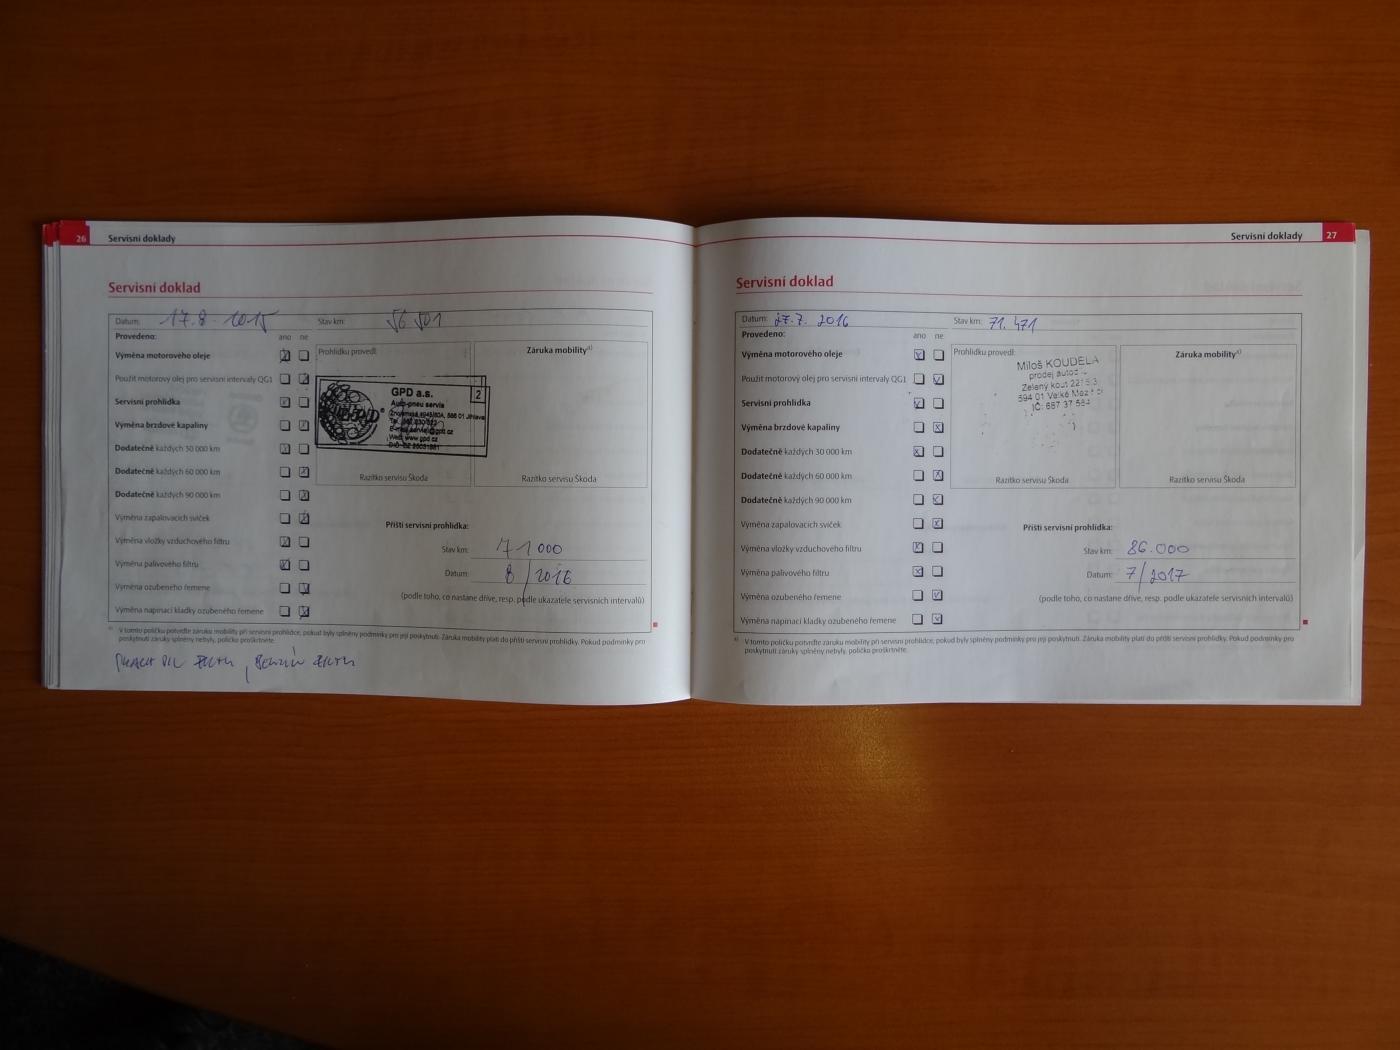 26 Servisní doklady
Servisní doklad
Datum: 17.8. 2015 Stav km: 56 501
Provedeno: ano ne
Výměna motorového oleje
Použit motorový olej pro servisní intervaly QG1
Servisní prohlídka
Výměna brzdové kapaliny
Dodatečně každých 30 000 km
Dodatečně každých 60 000 km
Dodatečně každých 90 000 km
Výměna zapalovacích svíček
Výměna vložky vzduchového filtru
Výměna palivového filtru
Výměna ozubeného řemene
Výměna napínací kladky ozubeného řemene
Prohlídku provedl:
GPD a.s. 2
Auto-pneu servis
586 01 Jihlava
Web: www.gpd.cz
Razítko servisu Škoda
Záruka mobility a)
Razítko servisu Škoda
Příští servisní prohlídka:
Stav km: 71 000
Datum: 8/2016
(podle toho, co nastane dříve, resp. podle ukazatele servisních intervalů)
a) V tomto políčku potvrďte záruku mobility při servisní prohlídce, pokud byly splněny podmínky pro její poskytnutí. Záruka mobility platí do příští servisní prohlídky. Pokud podmínky pro
poskytnutí záruky splněny nebyly, políčko proškrtněte.
Servisní doklady 27
Servisní doklad
Datum: 27.7. 2016 Stav km: 71.471
Provedeno: ano ne
Výměna motorového oleje
Použit motorový olej pro servisní intervaly QG1
Servisní prohlídka
Výměna brzdové kapaliny
Dodatečně každých 30 000 km
Dodatečně každých 60 000 km
Dodatečně každých 90 000 km
Výměna zapalovacích svíček
Výměna vložky vzduchového filtru
Výměna palivového filtru
Výměna ozubeného řemene
Výměna napínací kladky ozubeného řemene
Prohlídku provedl:
Miloš KOUDELA
prodej
Zelený kout
594 01 Velké
IČ: 687 37 584
Razítko servisu Škoda
Záruka mobility a)
Razítko servisu Škoda
Příští servisní prohlídka:
Stav km: 86.000
Datum: 7/2017
(podle toho, co nastane dříve, resp. podle ukazatele servisních intervalů)
a) V tomto políčku potvrďte záruku mobility při servisní prohlídce, pokud byly splněny podmínky pro její poskytnutí. Záruka mobility platí do příští servisní prohlídky. Pokud podmínky pro
poskytnutí záruky splněny nebyly, políčko proškrtněte.